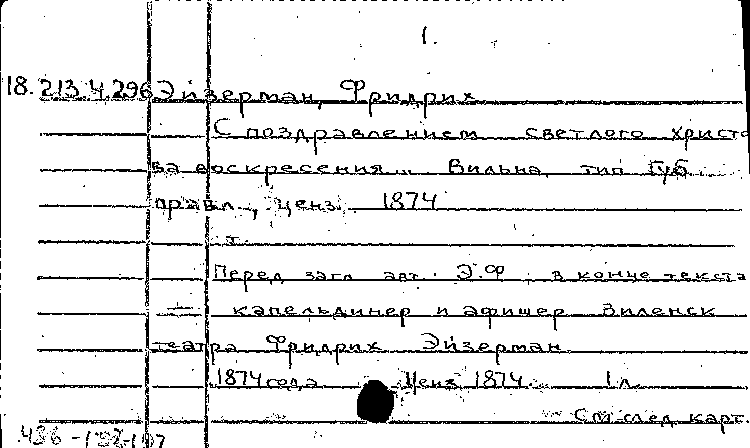 1.
18.213.4.296 Эйзерман, Фридрих
С поздравлением светлого христо
ва воскресения... Вильна, тип Губ.
правл., ценз. 1874
т.
Перед загл авт.: Э.Ф в конце текста
— капельдинер и афишер Виленск
театра Фридрих Эйзерман
1874 года Ценз 1874. 1 л.
См след карт.